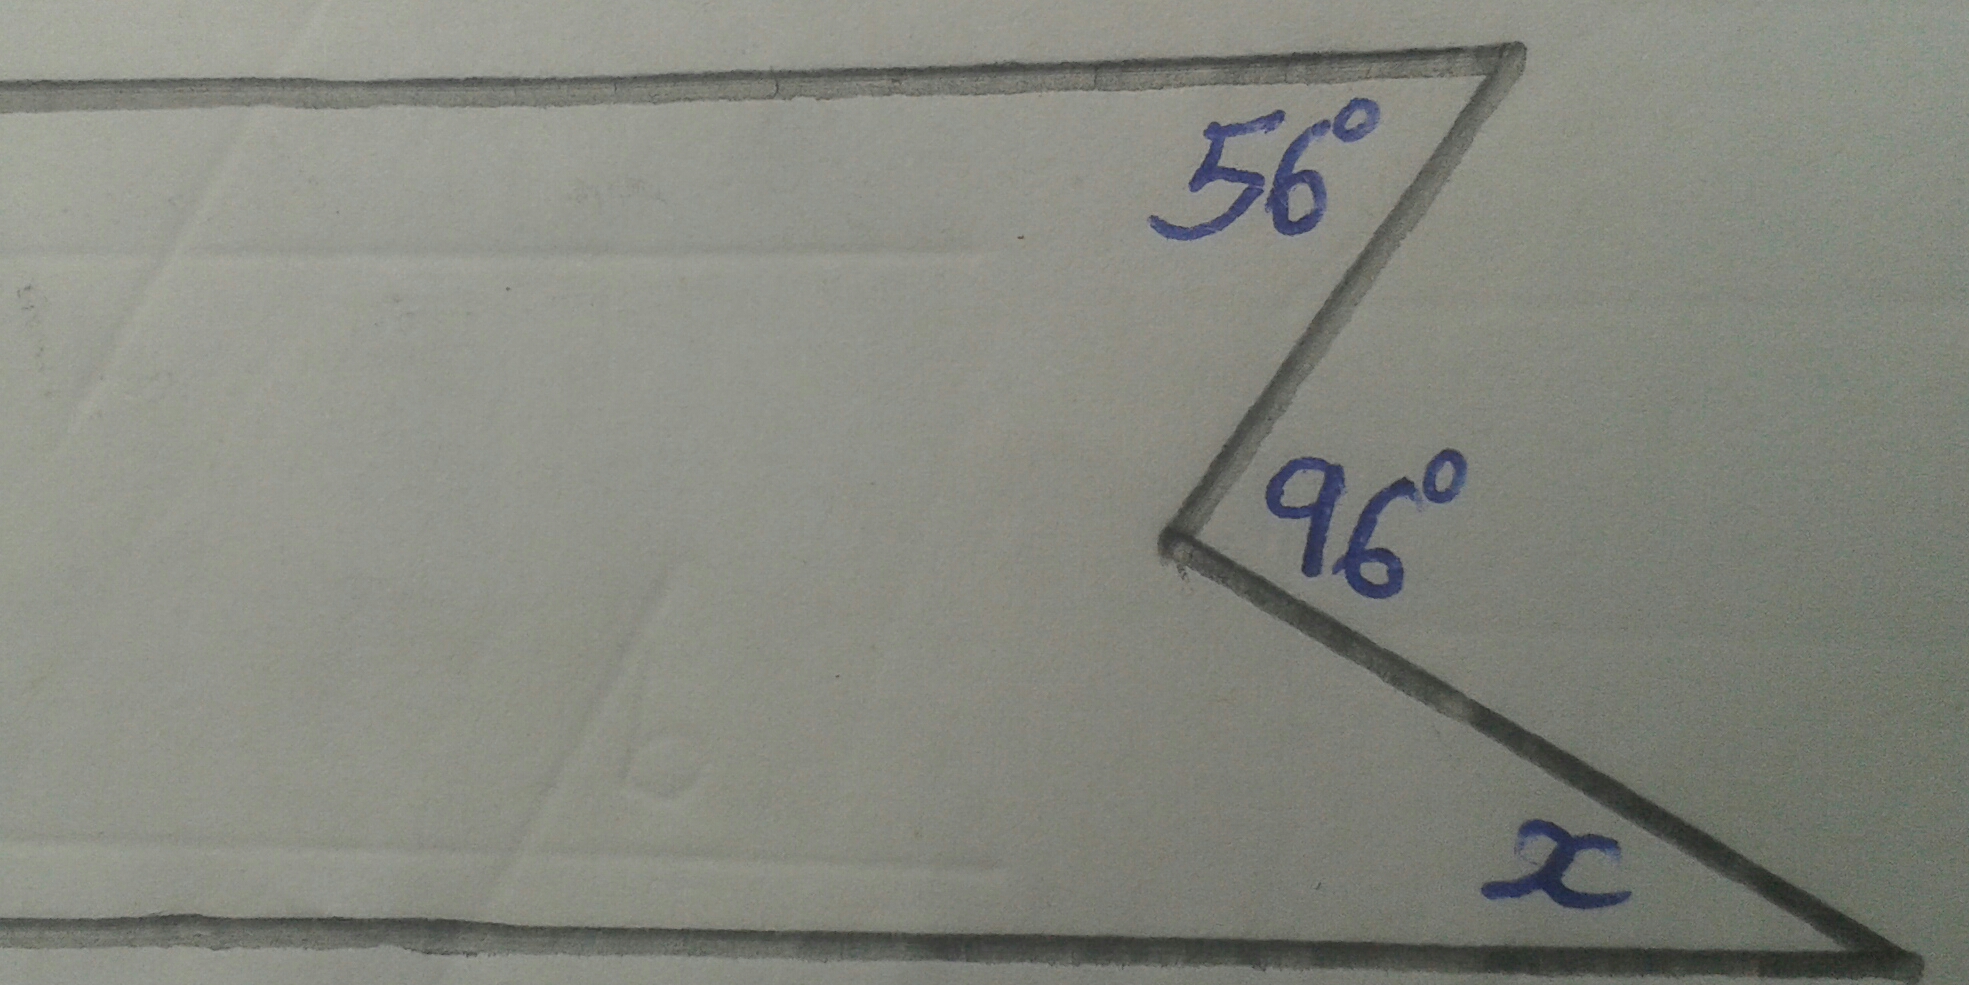 56°
96°
x